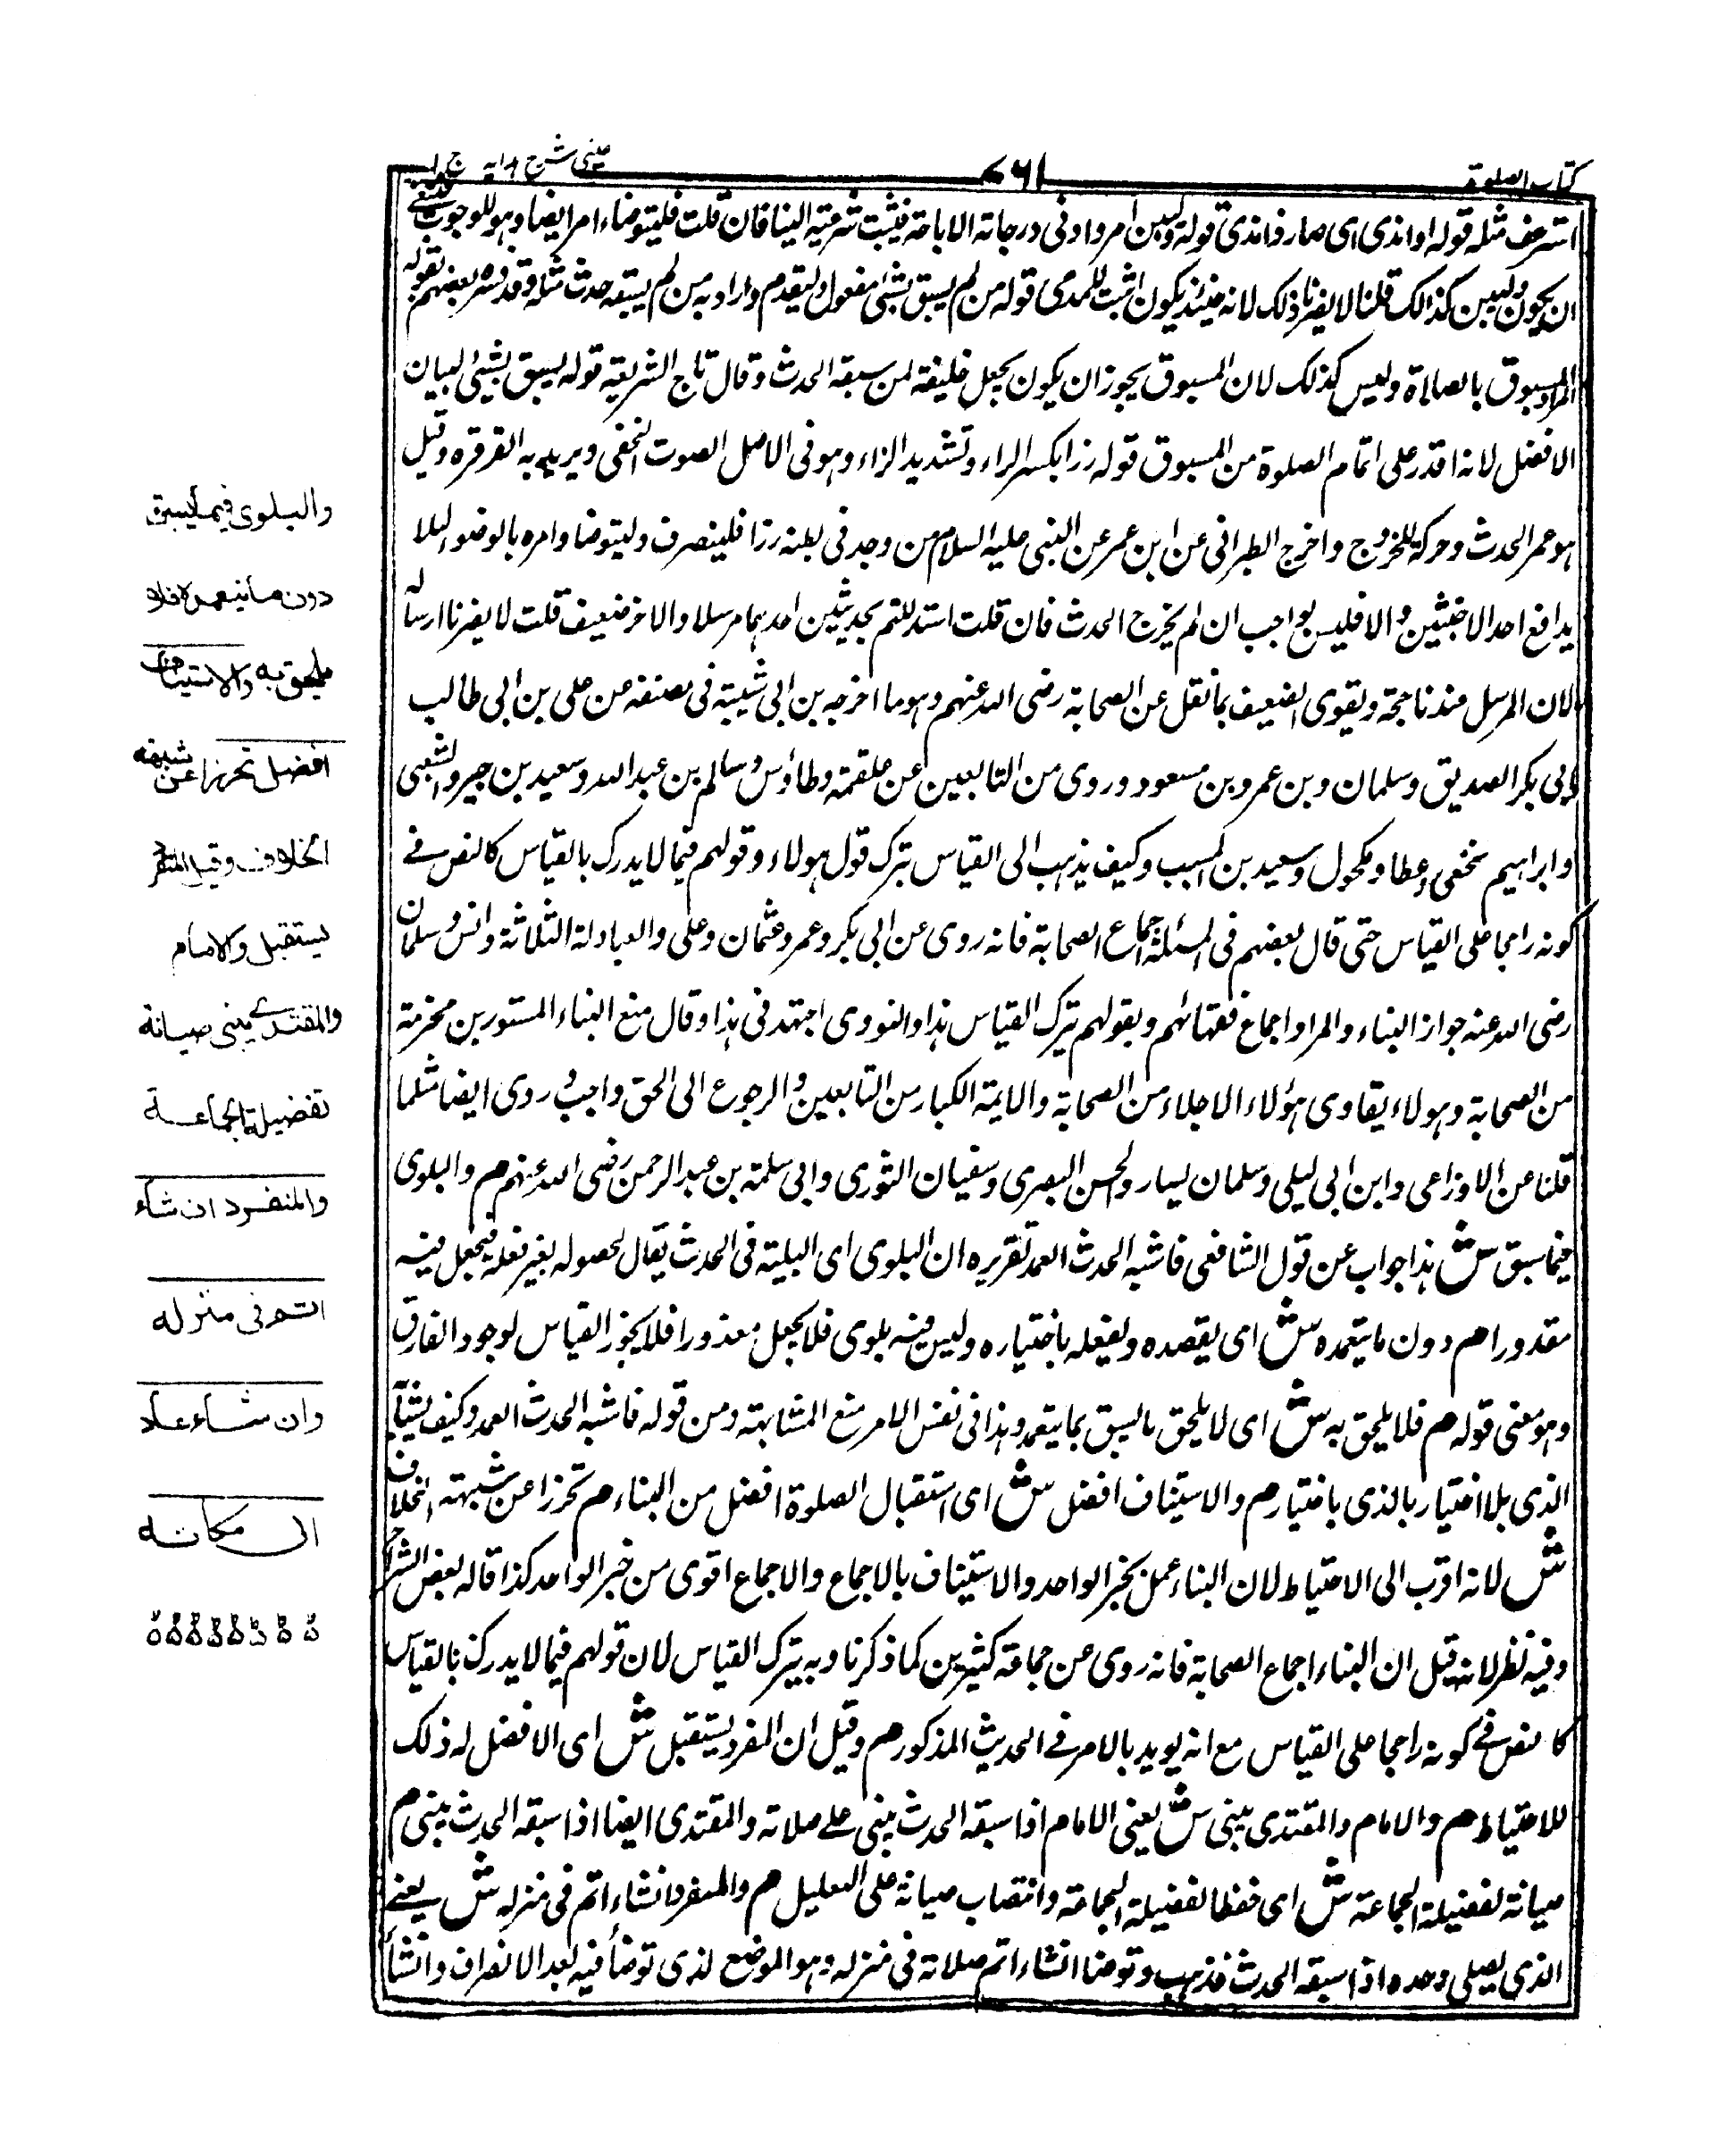 كتاب الصلوة
٧٦١
عيني شرح هدايه ج ا
استرعف مثله قوله او امذى اى صار ذا مذى قوله وليبن امر وادنى درجاته الاباحة فيثبت شرعيته البنا فان قلت فليتوضاء امر ايضا وهو للوجوب فينبغى
ان يكون وليبن كذالك قلنا لا يضرنا ذلك لانه حينئذ يكون اثبت للمدعى قوله من لم يسبق بشئ مفعول وليقدم واراد به من لم يسبقه حدث مثله وقد فسره بعضهم بقوله
المراد المسبوق بالصلاة وليس كذلك لان المسبوق يجوز ان يكون يجعل خليفة لمن سبقه الحدث وقال تاج الشريعه قوله يسبق بشيئ لبيان
الافضل لانه اقدر على اتمام الصلوة من المسبوق قوله رزا بكسر الراء وتشديد الزاء وهو فى الاصل الصوت الخفى ويريد به القرقره وقيل
هو حمر الحدث وحركة للخروج واخرج الطبرانى عن ابن عمر عن النبى عليه السلام من وجد فى بطنه رزا فلينصرف وليتوضا وامره بالوضوء ليلا
يدافع احد الاخبثين والا فليس بواجب ان لم يخرج الحدث فان قلت استدللتم بحديثين احدهما مرسلا والاخر ضعيف قلت لا يضرنا ارساله
لان المرسل عندنا حجة ويقوى الضعيف بما نقل عن الصحابة رضى الله عنهم وهو ما اخرجه بن ابى شيبة فى مصنفه عن على بن ابى طالب
وابى بكر الصديق وسلمان وبن عمر وبن مسعود وروى من التابعين عن علقمة وطاؤس وسالم بن عبد الله وسعيد بن جبير والشعبى
وابراهيم نخعى وعطا ومكحول وسعيد بن المسبب وكيف يذهب الى القياس بترك قول هولاء وقولهم فيما لا يدرك بالقياس كالنص فے
كونه راجحا على القياس حتى قال بعضهم فى المسئلة اجماع الصحابة فانه روى عن ابى بكر وعمر وعثمان وعلى والعبادلة الثلاثة وانس وسلمان
رضى الله عنه جواز البناء والمراد اجماع فقهائهم وبقولهم يترك القياس هذا والنووى اجتهد فى هذا وقال منع البناء المستور بن مخرمة
من الصحابة وهولاء يقاوى هؤلاء الاجلاء من الصحابة والايمة الكبار من التابعين والرجوع الى الحق واجب وروى ايضا مثلما
قلنا عن الاوزاعى وابن ابى ليلى وسلمان يسار والحسن البصرى وسفيان الثورى وابى سلمة بن عبد الرحمن رضى الله عنهم م والبلوى
فيما سبق ش هذا جواب عن قول الشافعى فاشبه الحدث العمد تقريره ان البلوى اى البلية فى الحدث يقال لحصوله بغير فعله فيجعل فيه
معذورا م دون ما يتعمده ش اى يقصده ويفعله باختياره وليس فيه بلوى فلا يجعل معذورا فلا يجوز القياس لوجود الفارق
وهو معنى قوله م فلا يلحق به ش اى لا يلحق ما يسبق بما يتعمد وهذا فى نفس الامر منع المشابهة ومن قوله فاشبه الحدث العمد وكيف يشبه
الذى بلا اختيار بالذى باختيار م والاستيناف افضل ش اى استقبال الصلوة افضل من البناء م تحرزا عن شبهته الخلاف
ش لانه اقرب الى الاحتياط لان البناء عمل بخبر الواحد والاستيناف بالاجماع والاجماع اقوى من خبر الواحد كذا قاله بعض الشراح
وفيه نظر لانه قيل ان البناء اجماع الصحابة فانه روى عن جماعة كثيرين كما ذكرنا وبه يترك القياس لان قولهم فيما لا يدرك بالقياس
كالنص فے كونه راجحا على القياس مع انه يويد بالامر فے الحديث المذكور م وقيل ان المفرد يستقبل ش اى الافضل له ذلك
للاحتياط م والامام والمقتدى يبنى ش يعنى الامام اذا سبقه الحدث يبنى على صلاته والمقتدى ايضا اذا سبقه الحدث يبنى م
صيانة لفضيلة الجماعة ش اى حفظا لفضيلة الجماعة وانتصاب صيانة على التعليل م والمنفرد انشاء اتم فى منزله ش يعنے
الذى يصلى وحده اذا سبقه الحدث فذهب وتوضا انشاء اتم صلاته فى منزله وهو الموضع الذى توضأ فيه بعد الانصراف وانشأ
والبلوى فيما يسبق
دون ما يتعمده فلا
يلحق به والاستيناف
افضل تحرزا عن شبهة
الخلاف وقيل المنفرد
يستقبل والامام
والمقتدے يبنى صيانة
لفضيلة الجماعة
والمنفرد ان شاء
اتم فى منزله
وان شاء عاد
الى مكانه